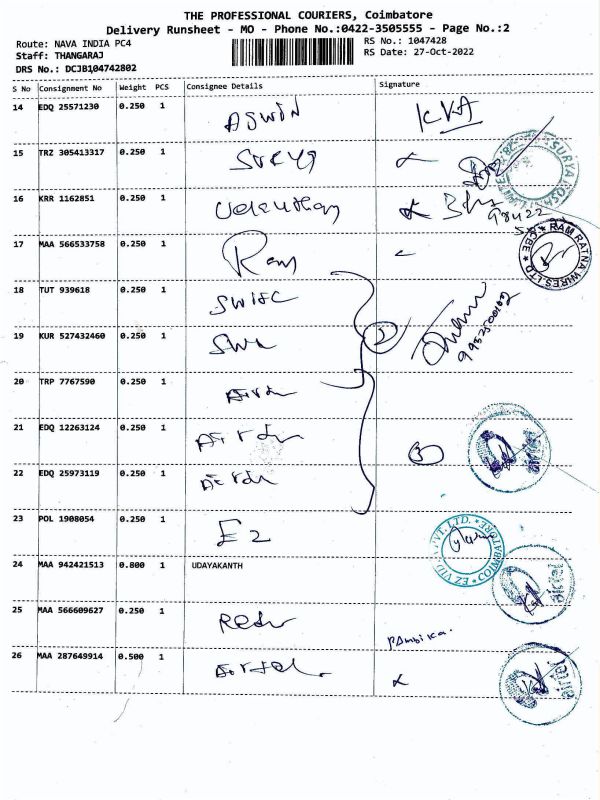 THE PROFESSIONAL COURIERS, Coimbatore
Delivery Runsheet - MO - Phone No.:0422-3505555 - Page No.:2
Route: NAVA INDIA PC4
RS No.: 1047428
Staff: THANGARAJ
RS Date: 27-Oct-2022
DRS No.: DCJB104742802
S No Consignment No Weight PCS Consignee Details Signature
14 EDQ 25571230 0.250 1 Aswin KVA
15 TRZ 305413317 0.250 1 Surya
16 KRR 1162851 0.250 1
17 MAA 566533758 0.250 1 Ram
RAM RATNA WIRES LTD * CBE *
18 TUT 939618 0.250 1
19 KUR 527432460 0.250 1
20 TRP 7767590 0.250 1
21 EDQ 12263124 0.250 1
airtel
22 EDQ 25973119 0.250 1
3
23 POL 1908054 0.250 1 EZ
24 MAA 942421513 0.800 1 UDAYAKANTH
airtel
25 MAA 566609627 0.250 1
26 MAA 287649914 0.500 1 Airtel
airtel